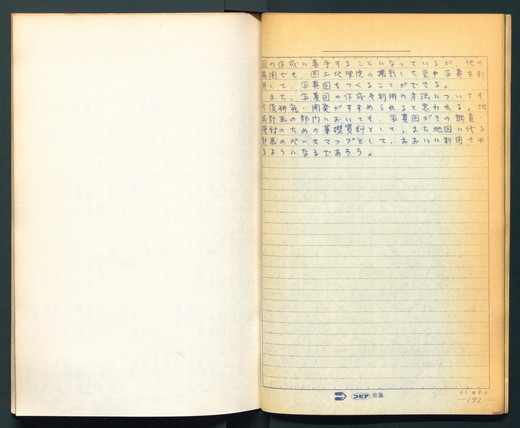 図の作成に着手することになっているが、他の
費用でも、国土地理院の撮影した空中写真を利
用して、写真図をつくることができる。
また、写真図の作成や利用の方法についても
今後研究・開発がすすめられると思われる。地
域計画の部内においても、写真図がその調査・
検討のための基礎資料として、また地図に代る
計画のベースマップとして、おおいに利用され
るようになるであろう。
コピア
—192—